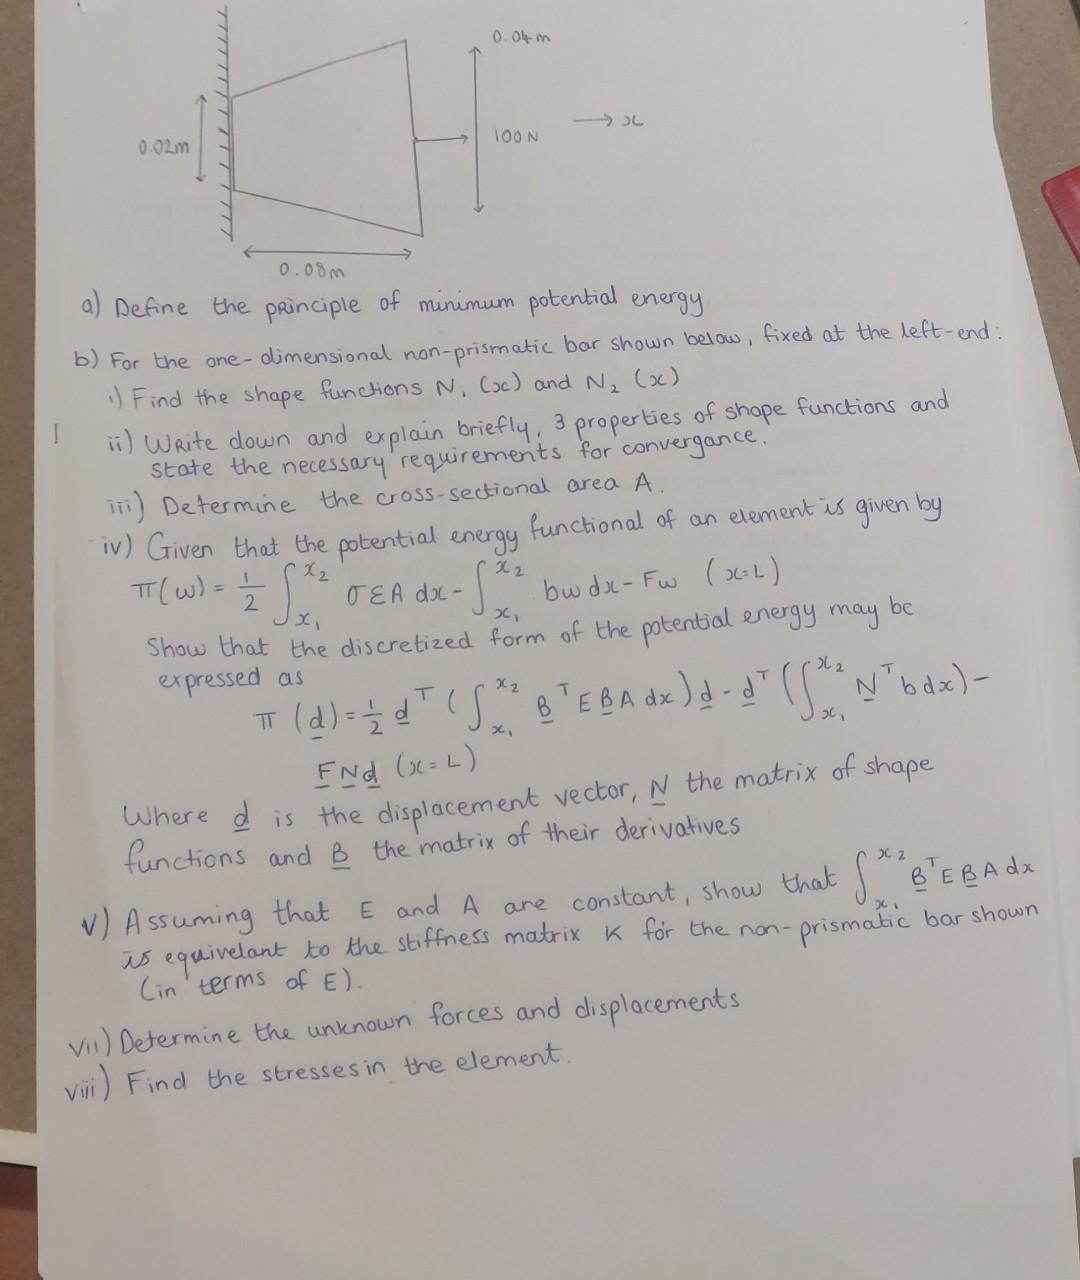 0.04m
100N
→ x
0.02m
0.08m
a) Define the principle of minimum potential energy
b) For the one-dimensional non-prismatic bar shown below, fixed at the left-end:
i) Find the shape functions N₁ (x) and N₂ (x)
ii) Write down and explain briefly, 3 properties of shape functions and
state the necessary requirements for convergance.
iii) Determine the cross-sectional area A.
iv) Given that the potential energy functional of an element is given by
π(w) = 1/2 ∫_{x₁}^{x₂} σEA dx - ∫_{x₁}^{x₂} bw dx - Fw (x=L)
Show that the discretized form of the potential energy may be
expressed as
π (d) = 1/2 d^T (∫_{x₁}^{x₂} B^T E B A dx) d - d^T (∫_{x₁}^{x₂} N^T b dx) -
F N d (x=L)
Where d is the displacement vector, N the matrix of shape
functions and B the matrix of their derivatives
v) Assuming that E and A are constant, show that ∫_{x₁}^{x₂} B^T E B A dx
is equivelant to the stiffness matrix K for the non-prismatic bar shown
(in terms of E).
vii) Determine the unknown forces and displacements
viii) Find the stresses in the element.